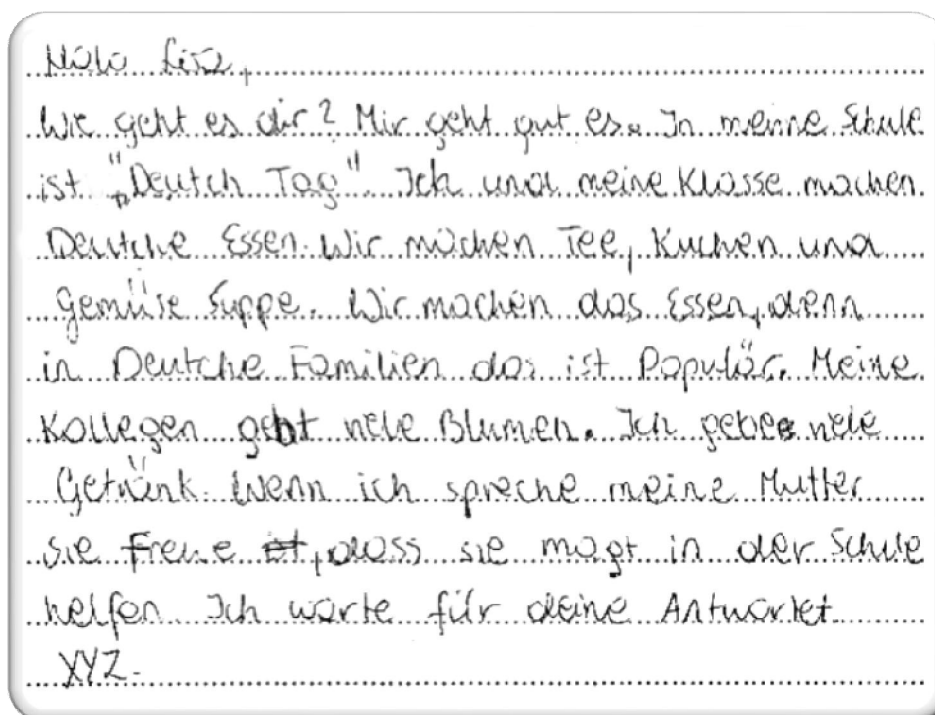 Hallo Lisa,
Wie geht es dir? Mir geht gut es. In meine Schule
ist "Deutch Tag". Ich und meine Klasse machen
Deutche Essen. Wir machen Tee, Kuchen und
Gemüse Suppe. Wir machen das Essen, denn
in Deutche Familien das ist Populär. Meine
Kollegen gebt viele Blumen. Ich gebe viele
Getränk. Wenn ich spreche meine Mutter
sie freue, dass sie magt in der Schule
helfen. Ich warte für deine Antwortet
XYZ.